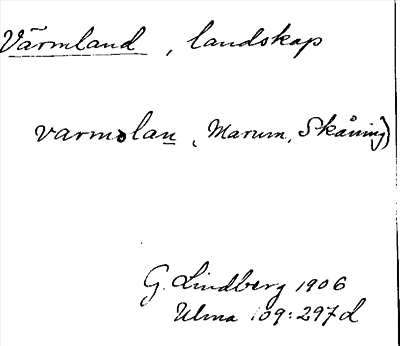 Värmland, landskap
varməlaṉ (Marum, Skåning)
G. Lindberg 1906
Ulma 109:297 d